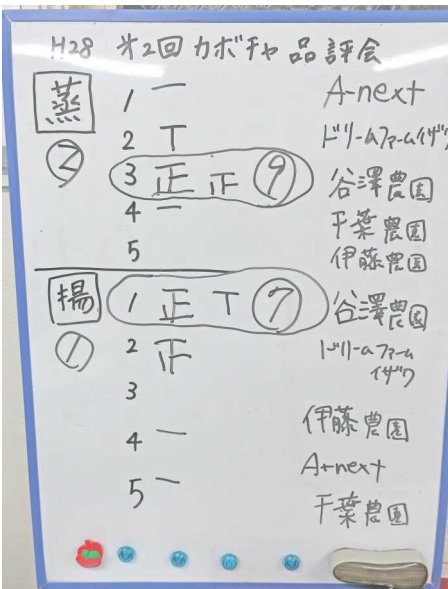 H28 第2回 カボチャ 品評会
蒸 ②
1 一 A-next
2 T ドリームファームイザワ
3 正 正 ⑨ 谷澤農園
4 一 千葉農園
5 伊藤農園
揚 ①
1 正 T ⑦ 谷澤農園
2 正 ドリームファーム
イザワ
3
4 一 伊藤農園
A+next
5 一 千葉農園